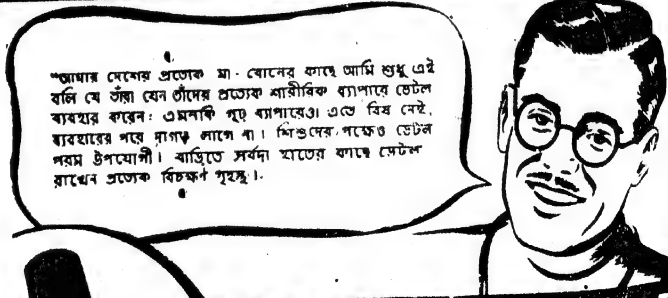 "আমার দেশের প্রত্যেক মা-বোনের কাছে আমি শুধু এই
বলি যে তাঁরা যেন তাঁদের প্রত্যেক শারীরিক ব্যাপারে ডেটল
ব্যবহার করেন: এমনকি গূঢ় ব্যাপারেও। এতে বিষ নেই,
ব্যবহারের পরে দাগও লাগে না। শিশুদের পক্ষেও ডেটল
পরম উপযোগী। বাড়িতে সর্বদা হাতের কাছে ডেটল
রাখেন প্রত্যেক বিচক্ষণ গৃহস্থ।